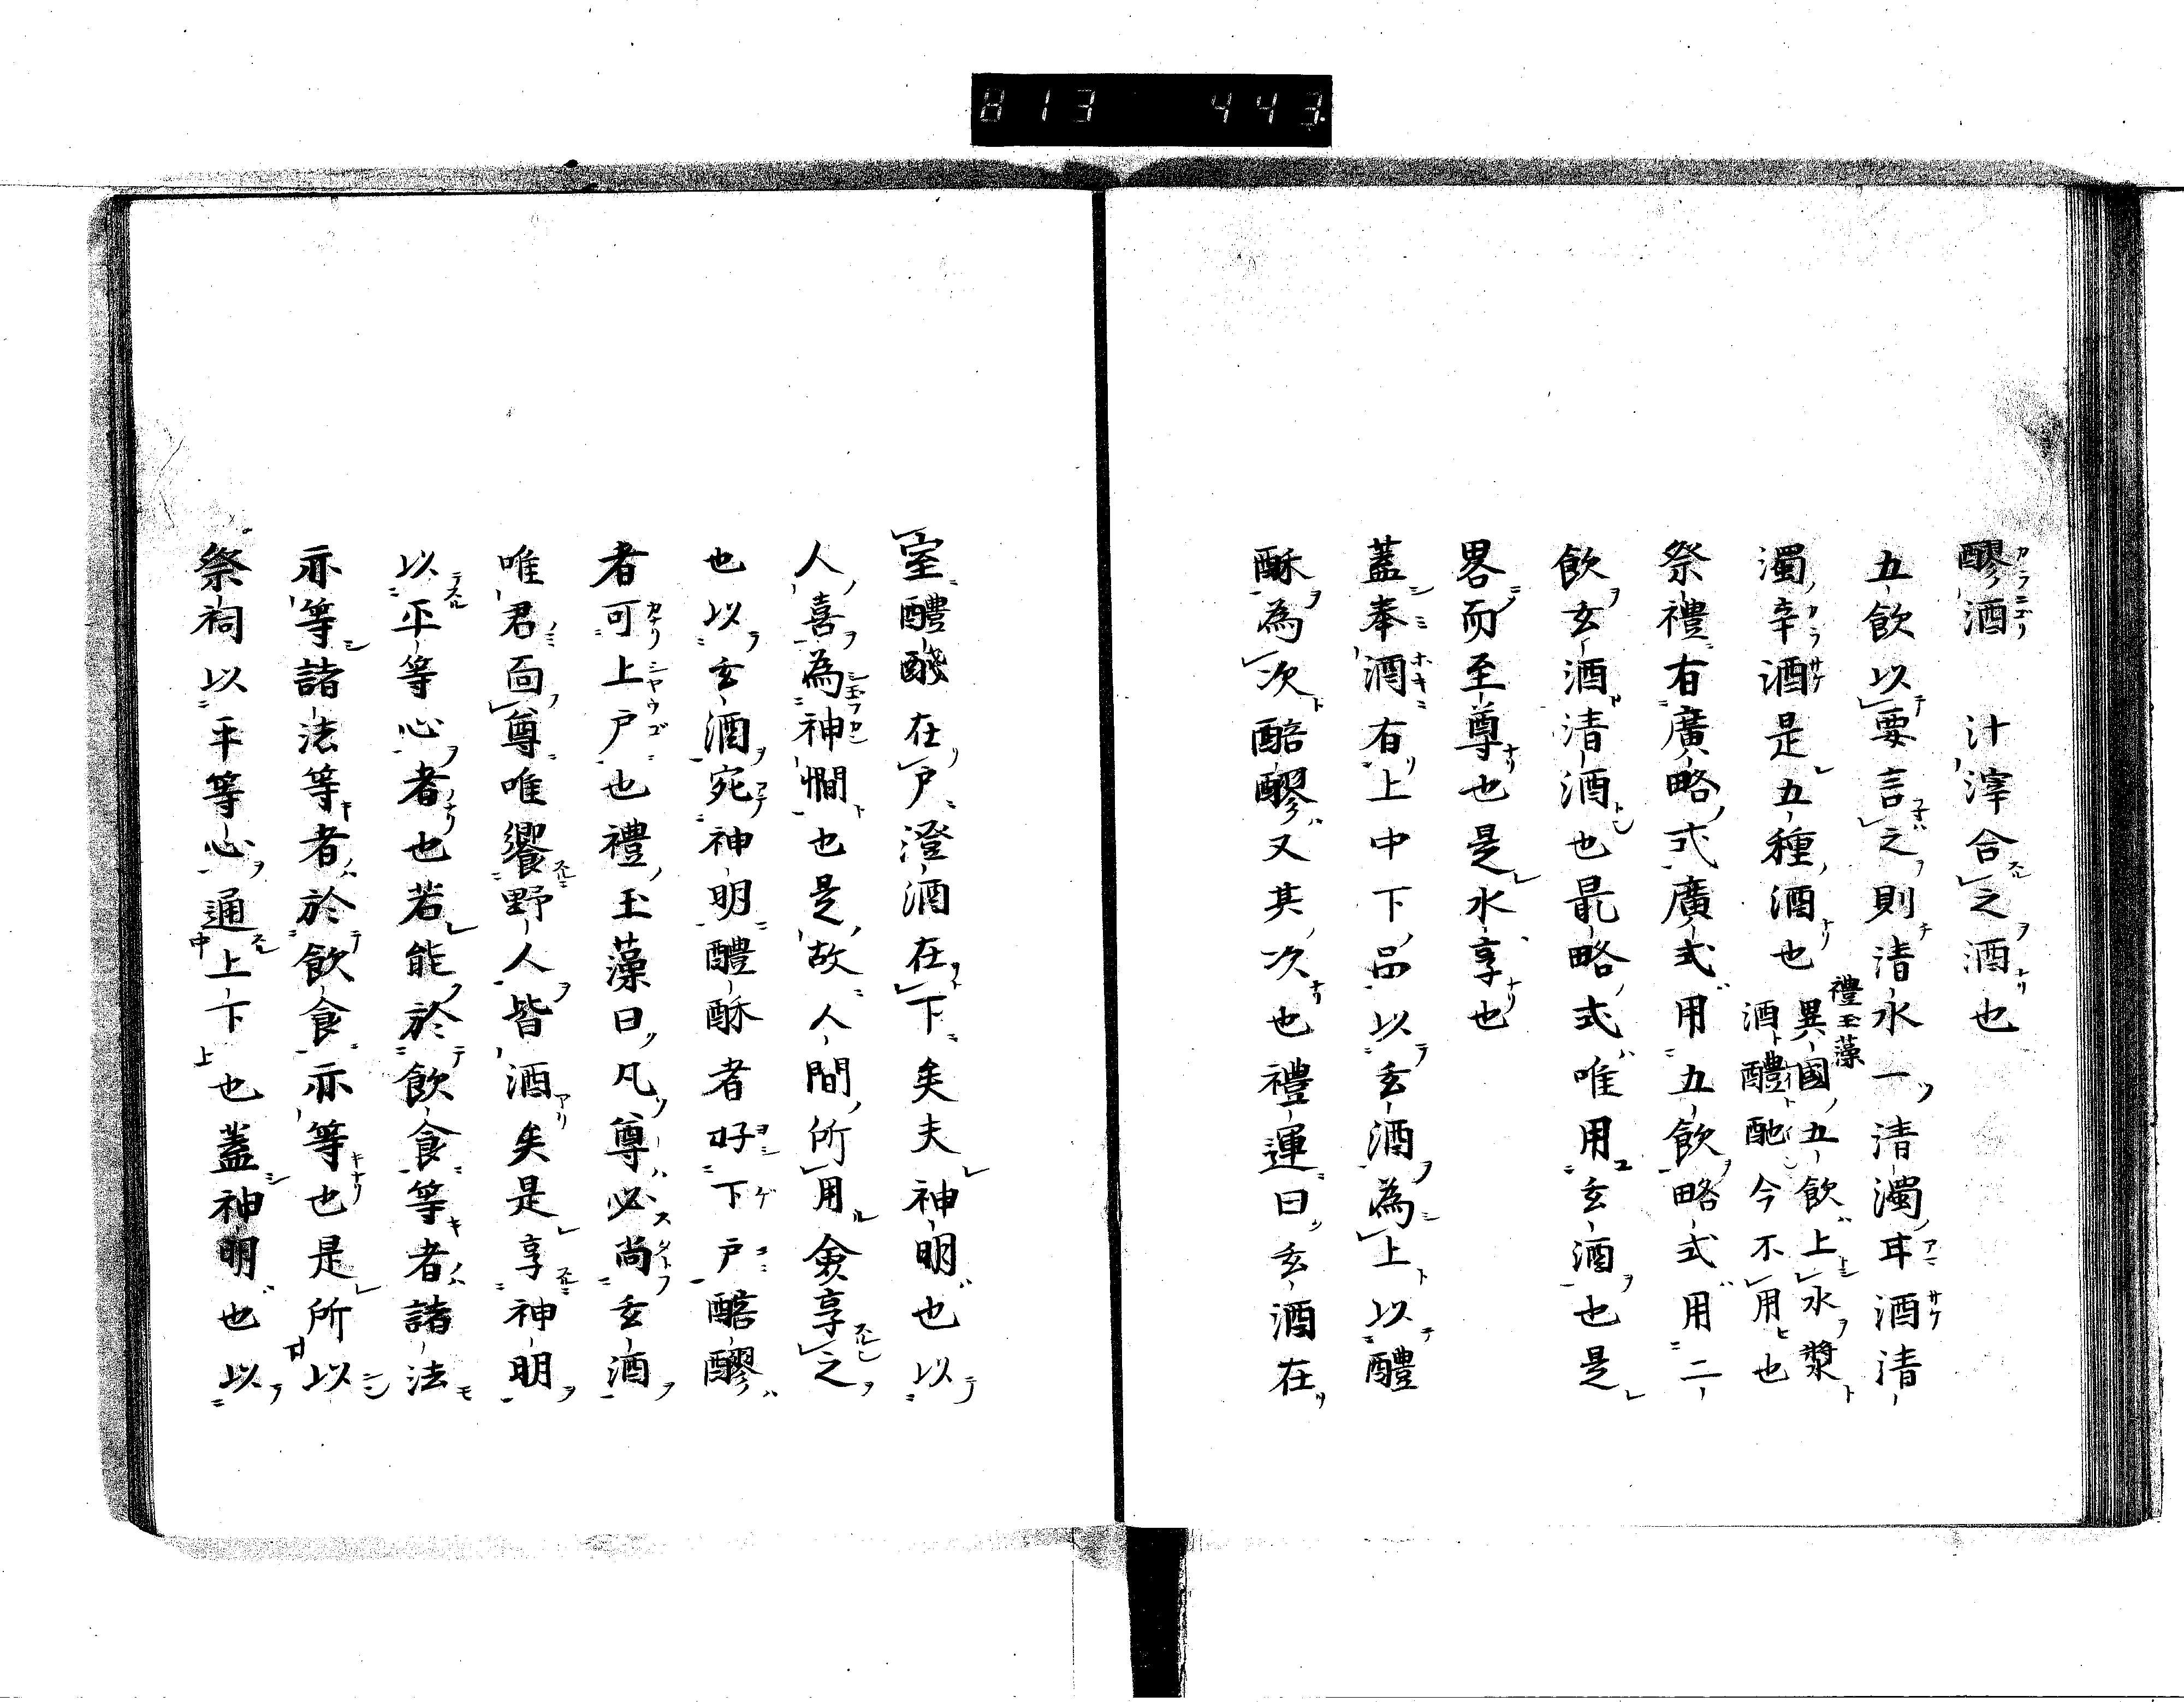 813 443
醪酒 汁滓合之酒也
五飲以要言之則清水一清濁耳酒清
濁辛酒是五種酒也
禮玉藻
異國五飲上水漿
酒醴酏今不用也
祭禮有廣略式廣式用五飲略式用二
飲玄酒清酒也最略式唯用玄酒也是
畧而至尊也是水享也
蓋奉酒有上中下品以玄酒為上以醴
酥為次醅醪又其次也禮運曰玄酒在
室醴醆在戶澄酒在下矣夫神明也以
人喜為神憪也是故人間所用僉享之
也以玄酒宛神明醴酥者好下戶醅醪
者可上戶也禮玉藻曰凡尊必尚玄酒
唯君面尊唯饗野人皆酒矣是享神明
以平等心者也若能於飲食等者諸法
亦等諸法等者於飲食亦等也是所以
祭祠以平等心通上下也蓋神明也以